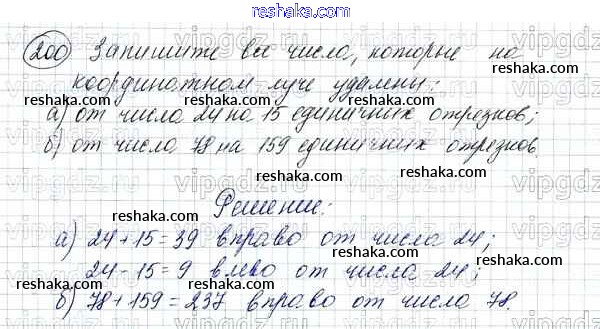 reshaka.com
200 Запишите все числа, которые на
координатном луче удалены:
reshaka.com reshaka.com reshaka.com
а) от числа 24 на 15 единичных отрезков;
б) от числа 78 на 159 единичных отрезков.
reshaka.com reshaka.com reshaka.com
Решение:
reshaka.com
а) 24+15=39 вправо от числа 24;
reshaka.com reshaka.com reshaka.com
24-15=9 влево от числа 24;
reshaka.com reshaka.com
б) 78+159=237 вправо от числа 78.
reshaka.com